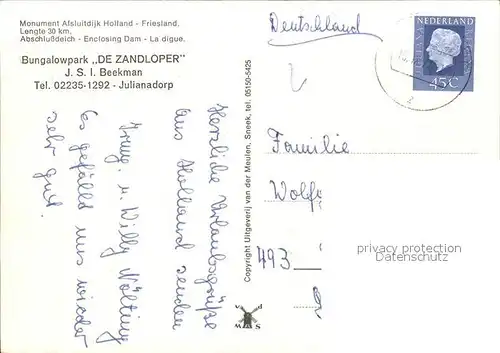 Monument Afsluitdijk Holland - Friesland.
Lengte 30 km.
Abschlußdeich - Enclosing Dam - La digue.
Bungalowpark „DE ZANDLOPER"
J. S. I. Beekman
Tel. 02235-1292 - Julianadorp
Herzliche Urlaubsgrüße
aus Holland senden
Irmg. u. Willy Nölting
Es gefällt uns wieder
sehr gut.
Copyright Uitgeverij van der Meulen, Sneek, tel. 05150-5425
Deutschland
NEDERLAND
45 C
Familie
Wolfg
493
privacy protection
Datenschutz